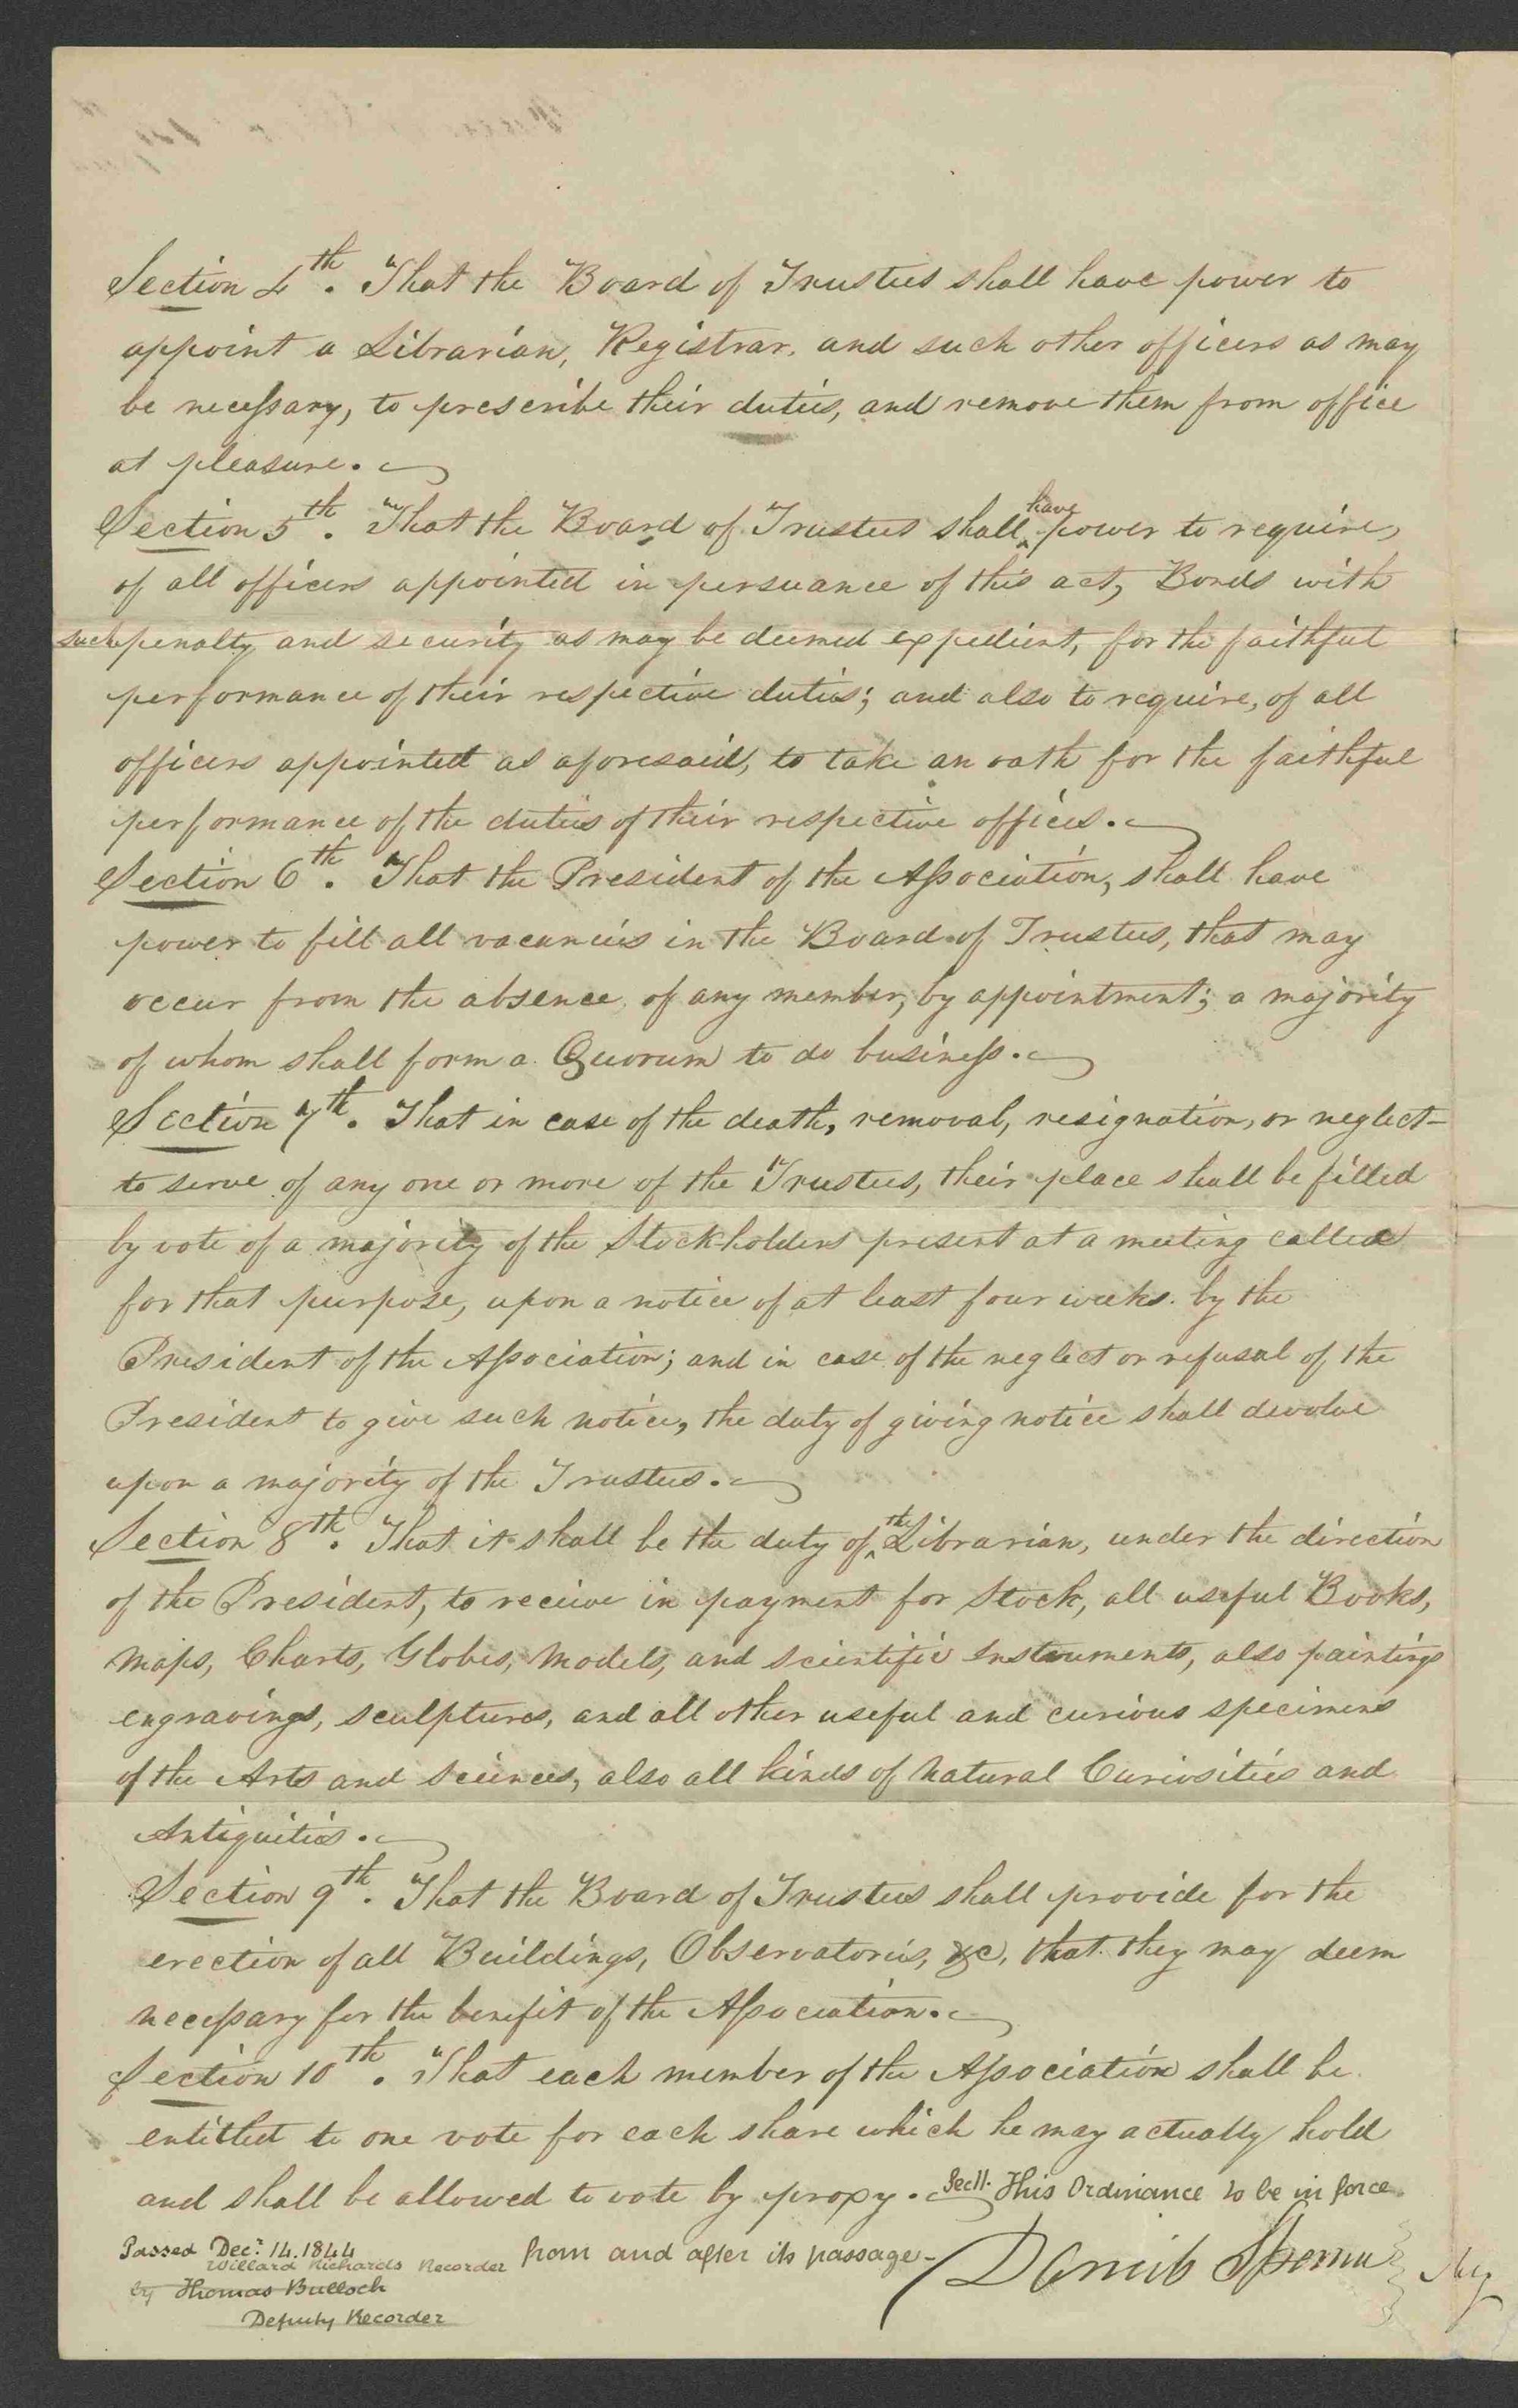 Section 4th. That the Board of Trustees shall have power to
appoint a Librarian, Registrar, and such other officers as may
be necessary, to prescribe their duties, and remove them from office
at pleasure.
Section 5th. That the Board of Trustees shall have power to require,
of all officers appointed in persuance of this act, Bonds with
such penalty and security as may be deemed expedient, for the faithful
performance of their respective duties; and also to require, of all
officers appointed as aforesaid, to take an oath for the faithful
performance of the duties of their respective offices.
Section 6th. That the President of the Association, shall have
power to fill all vacancies in the Board of Trustees, that may
occur from the absence of any member, by appointment; a majority
of whom shall form a Quorum to do business.
Section 7th. That in case of the death, removal, resignation, or neglect
to serve of any one or more of the Trustees, their place shall be filled
by vote of a majority of the Stockholders present at a meeting called
for that purpose, upon a notice of at least four weeks by the
President of the Association; and in case of the neglect or refusal of the
President to give such notice, the duty of giving notice shall devolve
upon a majority of the Trustees.
Section 8th. That it shall be the duty of the Librarian, under the direction
of the President, to receive in payment for Stock, all useful Books,
Maps, Charts, Globes, Models, and scientific Instruments, also paintings
engravings, sculptures, and all other useful and curious specimens
of the Arts and Sciences, also all kinds of Natural Curiosities and
Antiquities.
Section 9th. That the Board of Trustees shall provide for the
erection of all Buildings, Observatories, &c, that they may deem
necessary for the benefit of the Association.
Section 10th. That each member of the Association shall be
entitled to one vote for each share which he may actually hold
and shall be allowed to vote by proxy. Sec 11. This Ordinance to be in force
from and after its passage-
Passed Decr. 14. 1844
Willard Richards Recorder
by Thomas Bullock
Deputy Recorder
Daniel Spencer